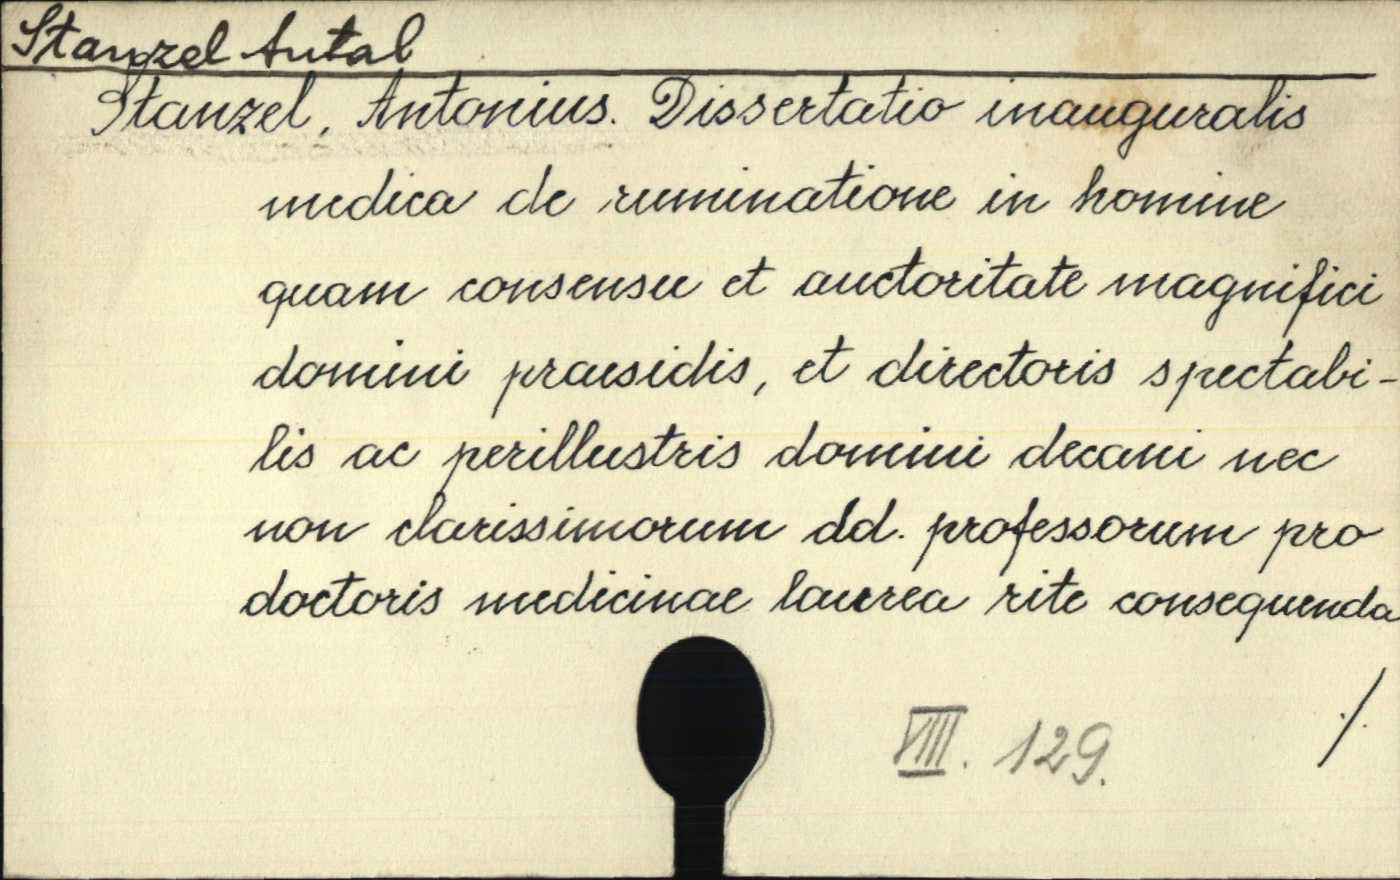 Stanzel Antal
Stanzel, Antonius. Dissertatio inauguralis
medica de ruminatione in homine
quam consensu et auctoritate magnifici
domini praesidis, et directoris spectabi-
lis ac perillustris domini decani nec
non clarissimorum dd. professorum pro
doctoris medicinae laurea rite consequenda
./.
VIII. 129.